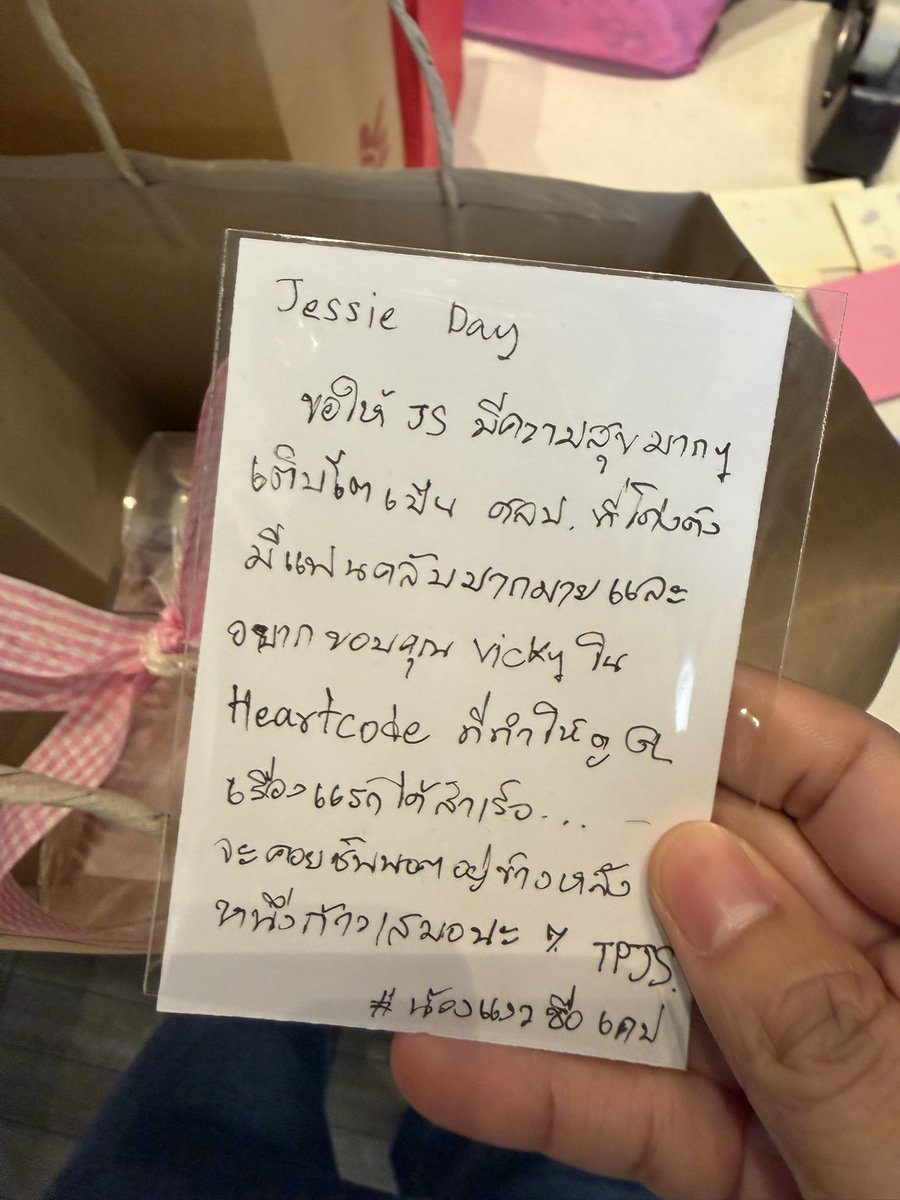 Jessie Day
ขอให้ JS มีความสุขมากๆ
เติบโตเป็น ศลป. ที่โด่งดัง
มีแฟนคลับมากมายและ
อยากขอบคุณ Vicky ใน
Heartcode ที่ทำให้ดู
เรื่องแรกได้สำเร็จ...
จะคอยซัพพอตอยู่ข้างหลัง
หนึ่งก้าวเสมอนะ TPJS.
# น้องแงวชื่อเคป